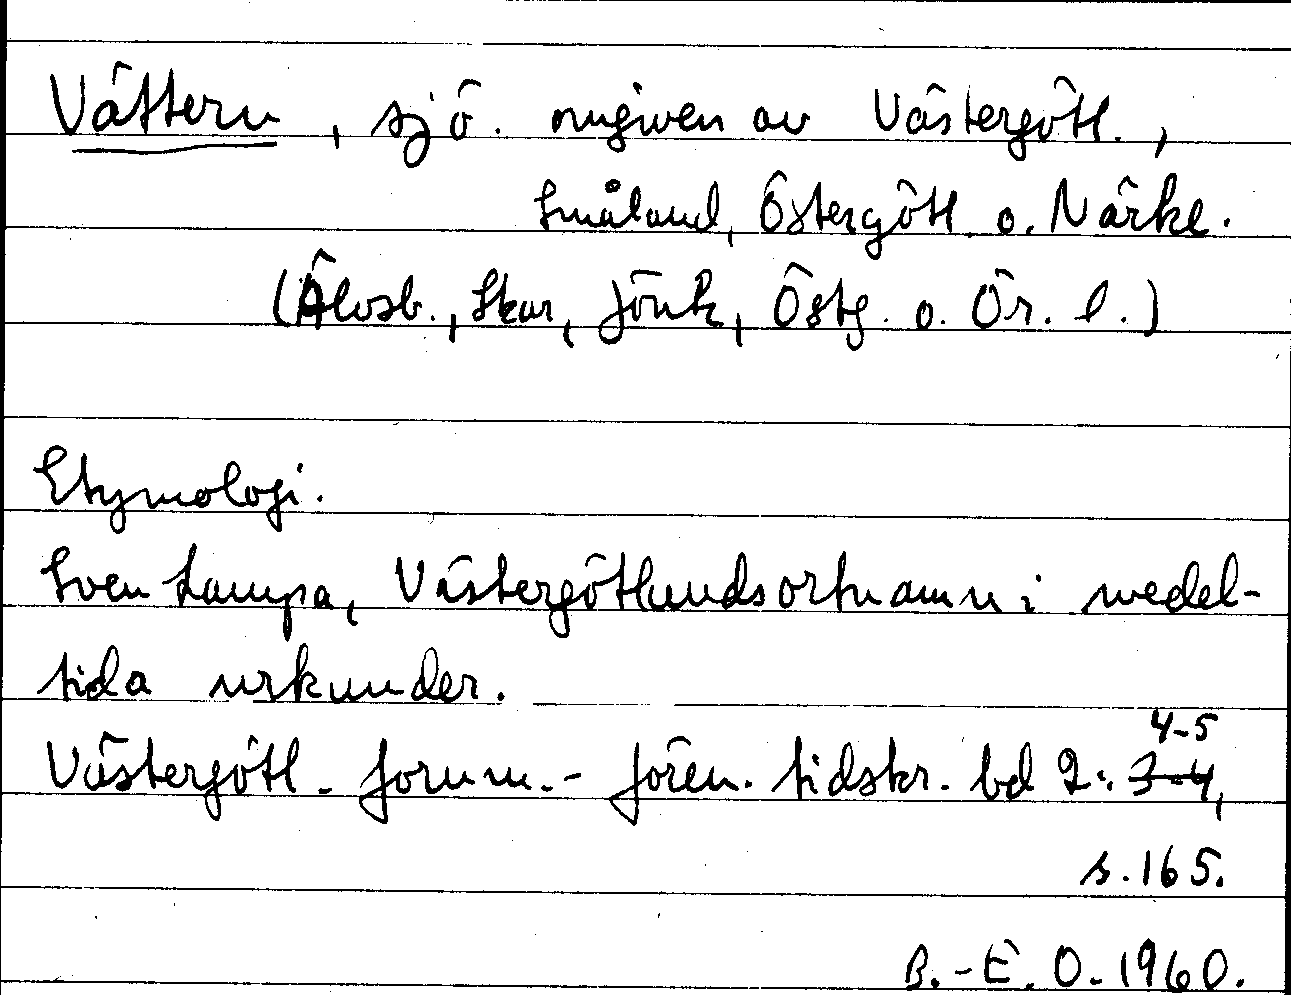 Vättern, sjö. omgiven av Västergötl.,
Småland, Östergötl. o. Närke.
(Älvsb., Skar, Jönk, Östg. o. Ör. l.)
Etymologi.
Sven Lampa, Västergötlandsortnamn i medel-
tida urkunder.
Västergötl. fornm.- fören. tidskr. bd 2: 3-4, 4-5
s. 165.
B.-E. O. 1960.